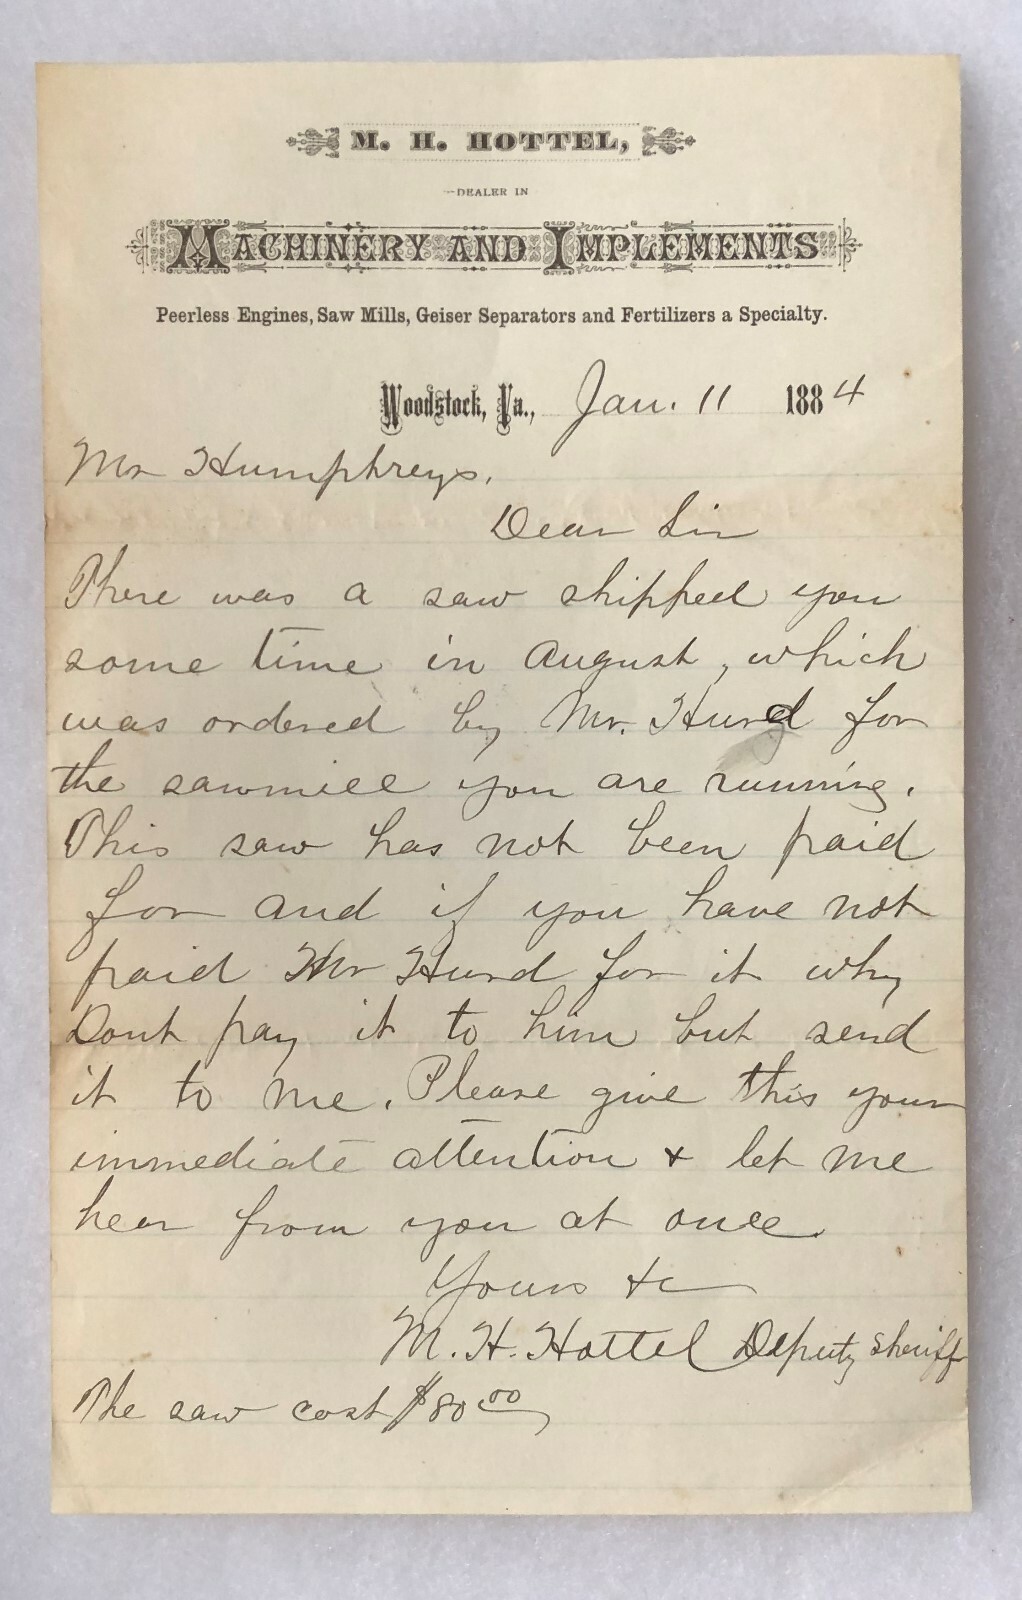 M. H. HOTTEL,
DEALER IN
MACHINERY AND IMPLEMENTS
Peerless Engines, Saw Mills, Geiser Separators and Fertilizers a Specialty.
Woodstock, Va., Jan. 11 1884
Mr Humphreys,
Dear Sir
There was a saw shipped you
some time in August, which
was ordered by Mr. Hurd for
the sawmill you are running.
This saw has not been paid
for and if you have not
paid Mr Hurd for it why
Dont pay it to him but send
it to me. Please give this your
immediate attention & let me
hear from you at once.
Yours &c
M. H. Hottel Deputy Sheriff
The saw cost $80.00